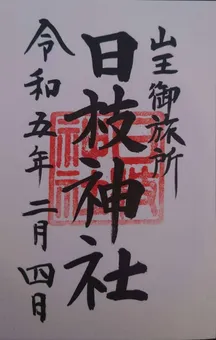 山王御旅所
日枝神社
令和五年二月四日